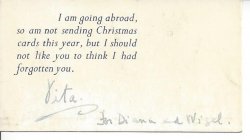 I am going abroad,
so am not sending Christmas
cards this year, but I should
not like you to think I had
forgotten you.
Vita.
for Diana and Nigel.